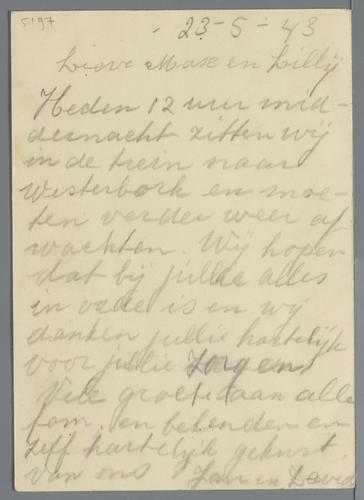 5197
- 23-5-43
Lieve Max en Lillÿ
Heden 12 uur mid-
dernacht zitten wÿ
in de trein naar
Westerbork en moe-
ten verder weer af
wachten. Wÿ hopen
dat bÿ jullie alles
in orde is en wÿ
danken jullie hartelÿk
voor jullie zorgen
Vele groeten aan alle
fam. en bekenden en
zelf hartelÿk gekust
van ons Jan en David